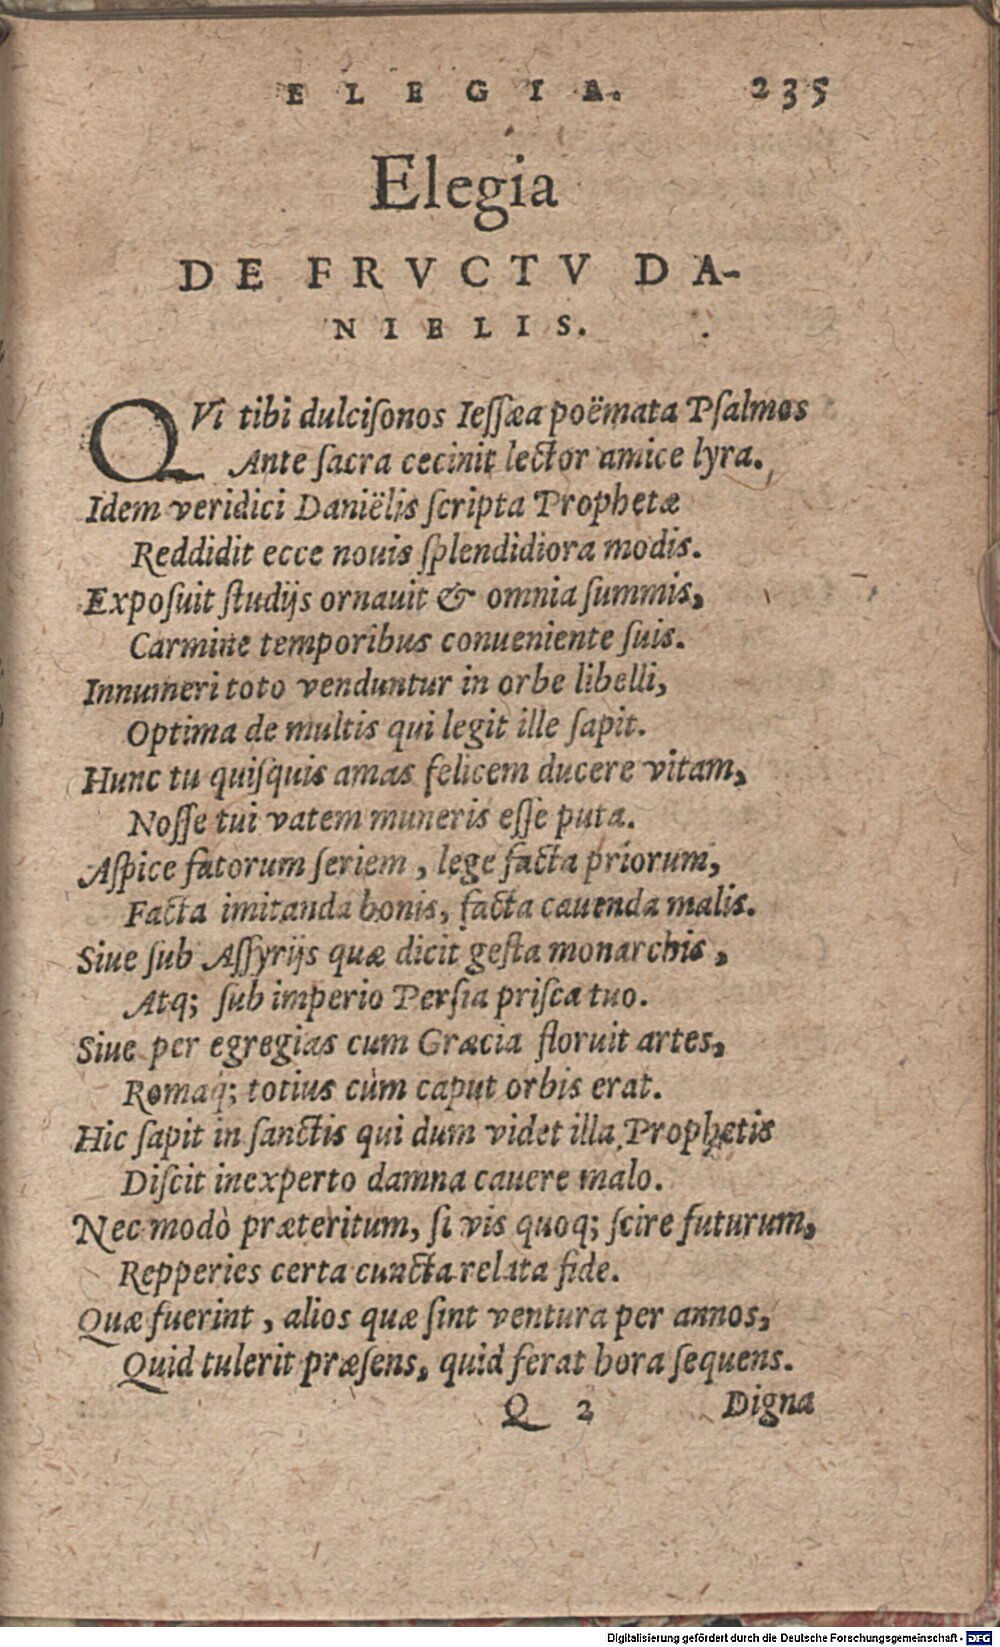 ELEGIA. 235
Elegia
DE FRVCTV DA-
NIELIS.
QVi tibi dulciſonos Ieſſæa poëmata Pſalmos
Ante ſacra cecinit lector amice lyra.
Idem veridici Daniëlis ſcripta Prophetæ
Reddidit ecce nouis ſplendidiora modis.
Expoſuit ſtudijs ornauit & omnia ſummis,
Carmine temporibus conueniente ſuis.
Innumeri toto venduntur in orbe libelli,
Optima de multis qui legit ille ſapit.
Hunc tu quiſquis amas felicem ducere vitam,
Noſſe tui vatem muneris eſſe puta.
Aſpice fatorum ſeriem, lege facta priorum,
Facta imitanda bonis, facta cauenda malis.
Siue ſub Aſſyrijs quæ dicit geſta monarchis,
Atq; ſub imperio Perſia priſca tuo.
Siue per egregias cum Græcia floruit artes,
Romaq; totius cùm caput orbis erat.
Hic ſapit in ſanctis qui dum videt illa Prophetis
Diſcit inexperto damna cauere malo.
Nec modò præteritum, ſi vis quoq; ſcire futurum,
Repperies certa cuncta relata fide.
Quæ fuerint, alios quæ ſint ventura per annos,
Quid tulerit præſens, quid ferat hora ſequens.
Q 2 Digna
Digitalisierung gefördert durch die Deutsche Forschungsgemeinschaft - DFG